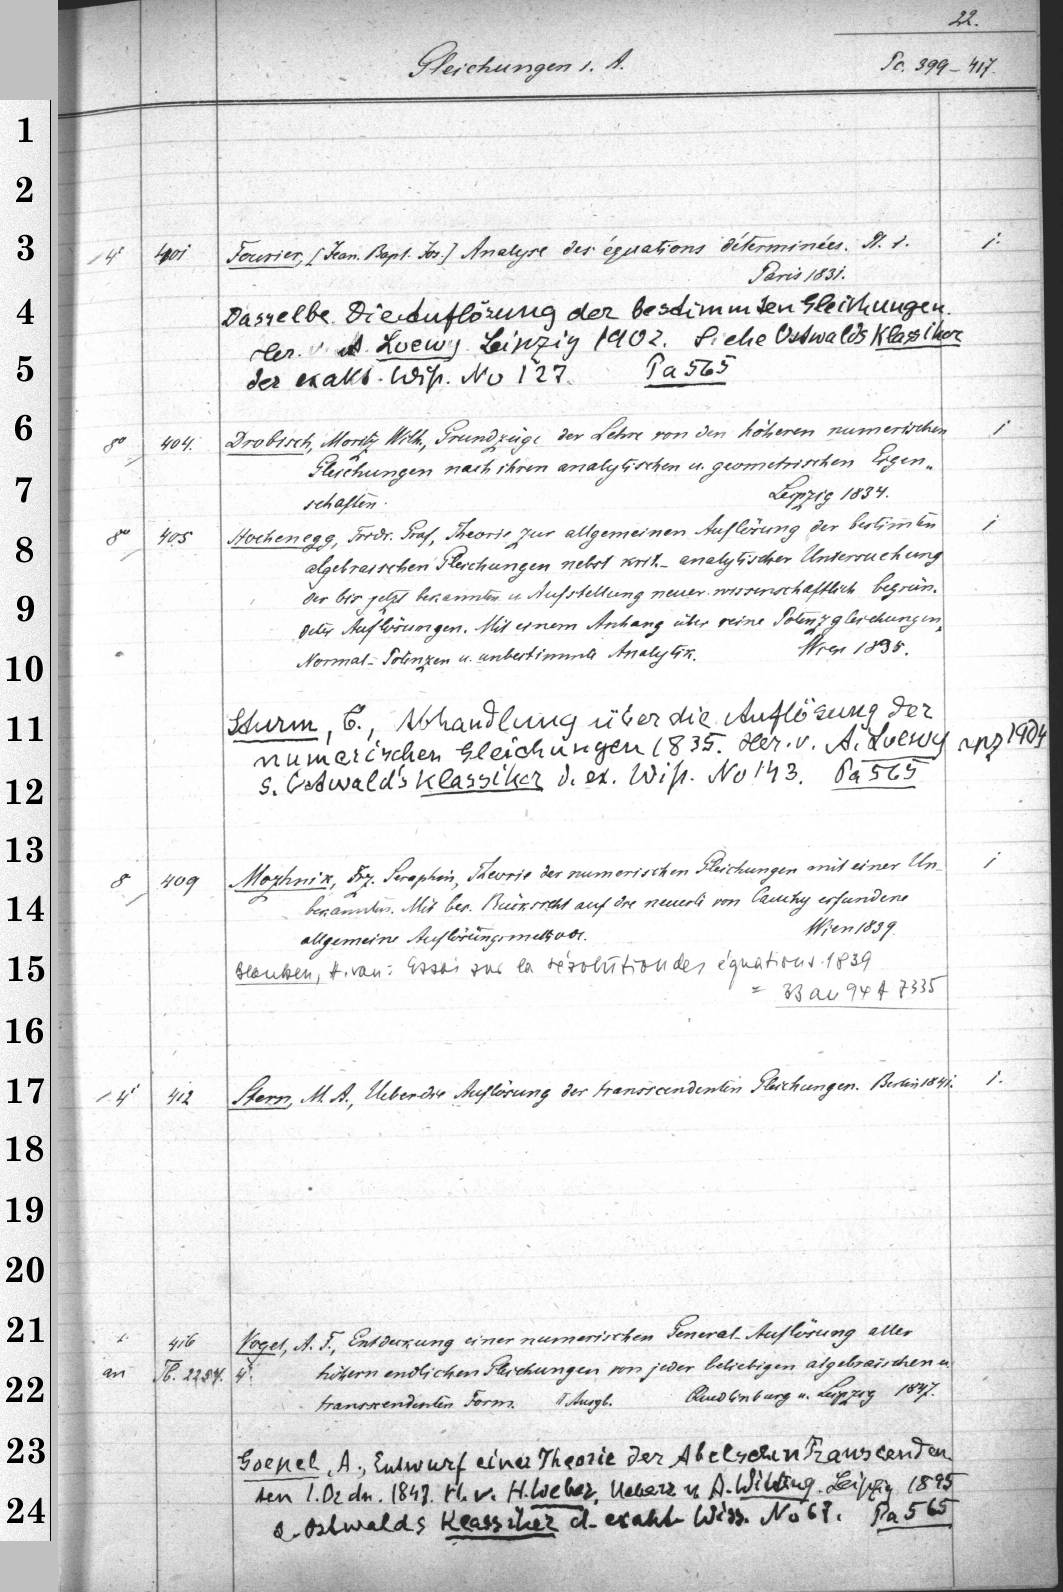 22.
Gleichungen i. A.
Pc. 399-417.
1
2
3
4° 401 Fourier, [Jean. Bapt. Jos.] Analyse des équations déterminées. P. 1. j.
Paris 1831.
4
Dasselbe. Die Auflösung der bestimmten Gleichungen.
Her. v. A. Loewy Leipzig 1902. Siehe Ostwalds Klassiker
5
der exakt. Wiss. No 127. Pa 565
6
8° 404. Drobisch, Moritz Wilh., Grundzüge der Lehre von den höheren numerischen j
Gleichungen nach ihren analytischen u. geometrischen Eigen-
7
schaften. Leipzig 1834.
8° 405 Hochenegg, Frdr. Graf, Theorie zur allgemeinen Auflösung der bestimten j
8
algebraischen Gleichungen nebst krit.-analytischer Untersuchung
9
der bis jetzt bekannten u. Aufstellung neuer wissenschaftlich begrün-
deter Auflösungen. Mit einem Anhang über reine Potenzgleichungen,
10
Normal-Potenzen u. unbestimmte Analytik. Wien 1835.
11
Sturm, C., Abhandlung über die Auflösung der
numerischen Gleichungen 1835. Her. v. A. Loewy Lpz 1904
12
s. Ostwald's Klassiker d. ex. Wiss. No 143. Pa 565
13
8 409 Mozhnik, Frz. Seraphin, Theorie der numerischen Gleichungen mit einer Un- j
14
bekannten. Mit bes. Rücksicht auf die neueste von Cauchy erfundene
allgemeine Auflösungsmethode. Wien 1839
15
H. van: Essai sur la résolution des équations. 1839
= 33 au 94 A 7335
16
17
4° 412 Stern, M. A., Ueber die Auflösung der transcendenten Gleichungen. Berlin 1841. j.
18
19
20
21
416 Vogel, A. F., Entdeckung einer numerischen General-Auflösung aller
an Tb. 2254. 4°. höhern endlichen Gleichungen von jeder beliebigen algebraischen u.
22
transcendenten Form. Ausgb. Quedlinburg u. Leipzig 1847.
23
Goepel, A., Entwurf einer Theorie der Abelschen Transcenden
ten 1. Ordn. 1847. H. v. H. Weber, Uebers v. A. Witting. Leipzig 1895
24
s. Ostwalds Klassiker d. exakt. Wiss. No 67. Pa 565